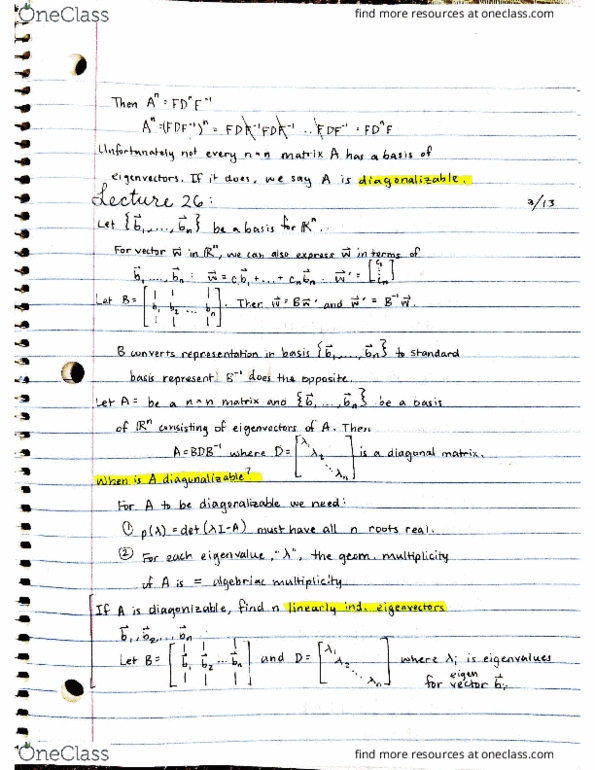 OneClass
find more resources at oneclass.com
Then Aⁿ = FDⁿF⁻¹
Aⁿ = (FDF⁻¹)ⁿ = FDF⁻¹FDF⁻¹ ... FDF⁻¹ = FDⁿF
Unfortunately not every n×n matrix A has a basis of
eigenvectors. If it does, we say A is diagonalizable.
Lecture 26:
3/13
Let {b⃗₁, ..., b⃗ₙ} be a basis for ℝⁿ.
For vector w⃗ in ℝⁿ, we can also express w⃗ in terms of
b⃗₁, ..., b⃗ₙ : w⃗ = c₁b⃗₁ + ... + cₙb⃗ₙ. w⃗' = [c₁ ⋮ cₙ]
Let B = [b₁ b₂ ... bₙ]. Then w⃗ = Bw⃗' and w⃗' = B⁻¹w⃗.
B converts representation in basis {b⃗₁, ..., b⃗ₙ} to standard
basis represent. B⁻¹ does the opposite.
Let A = be a n×n matrix and {b⃗₁, ..., b⃗ₙ} be a basis
of ℝⁿ consisting of eigenvectors of A. Then
A = BDB⁻¹ where D = [λ₁ λ₂ ⋱ λₙ] is a diagonal matrix.
When is A diagonalizable?
For A to be diagonalizable we need:
① p(λ) = det(λI-A) must have all n roots real.
② For each eigenvalue, "λ", the geom. multiplicity
of A is = algebriac multiplicity
If A is diagonizable, find n linearly ind. eigenvectors
b⃗₁, b⃗₂, ... b⃗ₙ.
Let B = [b⃗₁ b⃗₂ ... b⃗ₙ] and D = [λ₁ λ₂ ⋱ λₙ] where λᵢ is eigenvalues
for eigen vector b⃗ᵢ
OneClass
find more resources at oneclass.com